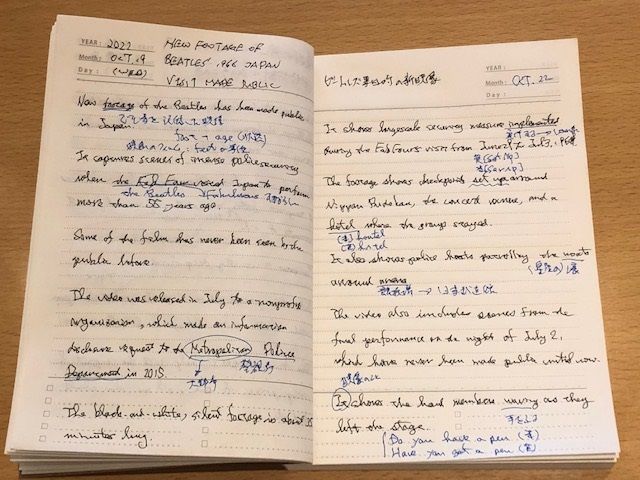 YEAR: 2022
Month: OCT. 19
Day: (WED)
NEW FOOTAGE OF
BEATLES' 1966 JAPAN
VISIT MADE PUBLIC
New footage of the Beatles has been made public
in Japan.
foot + age
It captures scenes of intense police security
when the Fab Four visited Japan to perform
the Beatles
more than 55 years ago.
Some of the film has never been seen by the
public before.
The video was released in July to a nonprofit
organization, which made an information
disclosure request to the Metropolitan Police
Department in 2015.
警視庁
大都市
The black-and-white, silent footage is about 35
minutes long.
YEAR:
Month: OCT. 22
Day:
ビートルズ来日時の新映像
It shows largescale security measure implemented
during the Fab Four's visit from June 27 to July 3, 1966.
The footage shows checkpoints set up around
Nippon Budokan, the concert venue, and a
hotel where the group stayed.
(米) houtel
(英) hotel
It also shows police boats patrolling the moats
around
The video also includes scenes from the
final performance on the night of July 2,
which have never been made public until now.
It shows the band members waving as they
手をふる
left the stage.
Do you have a pen (米)
Have you got a pen (英)